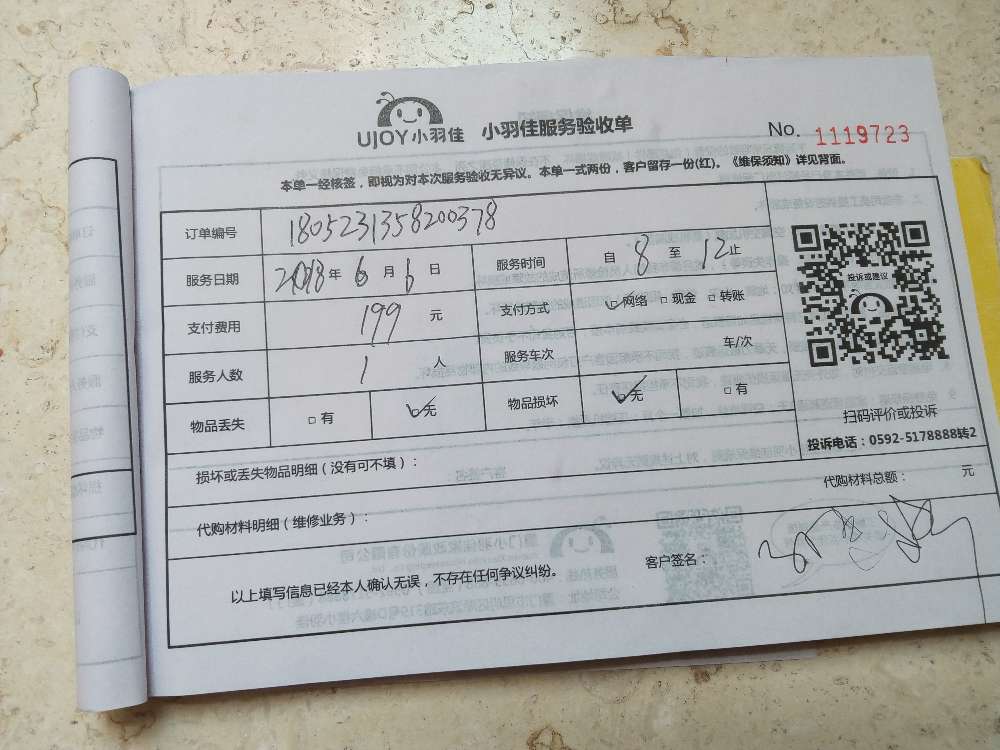 UJOY小羽佳 小羽佳服务验收单 No. 1119723
本单一经核签，即视为对本次服务验收无异议。本单一式两份，客户留存一份(红)。《维保须知》详见背面。
订单编号 180523135820378
服务日期 2018年 6 月 6 日 服务时间 自 8 至 12 止
支付费用 199 元 支付方式 ☑网络 □现金 □转账
服务人数 1 人 服务车次 车/次
物品丢失 □有 ☑无 物品损坏 ☑无 □有
投诉或建议
扫码评价或投诉
投诉电话：0592-5178888转2
损坏或丢失物品明细（没有可不填）：
代购材料明细（维修业务）： 代购材料总额： 元
以上填写信息已经本人确认无误，不存在任何争议纠纷。 客户签名：